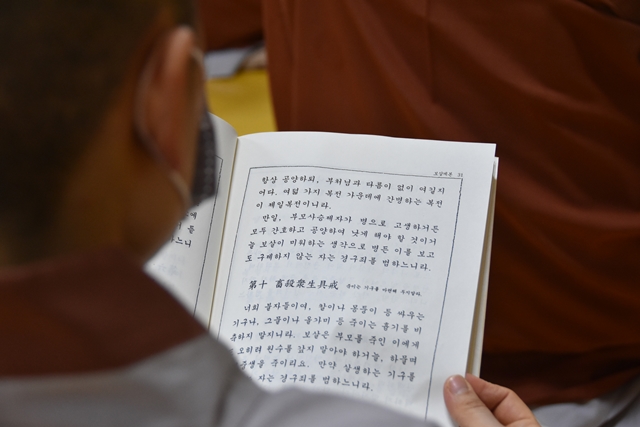 보살계본 31
항상 공양하되, 부처님과 다름이 없이 여길지
어다. 여덟 가지 복전 가운데에 간병하는 복전
이 제일복전이니라.
만일, 부모사승제자가 병으로 고생하거든
모두 간호하고 공양하여 낫게 해야 할 것이거
늘 보살이 미워하는 생각으로 병든 이를 보고
도 구제하지 않는 자는 경구죄를 범하느니라.
第十 畜殺衆生具戒 죽이는 기구를 마련해 두지말라.
너희 불자들이여, 칼이나 몽둥이 등 싸우는
기구나, 그물이나 올가미 등 죽이는 흉기를 비
축하지 말지니라. 보살은 부모를 죽인 이에게
오히려 원수를 갚지 말아야 하거늘, 하물며
중생을 죽이리요. 만약 살생하는 기구를
자는 경구죄를 범하느니라.